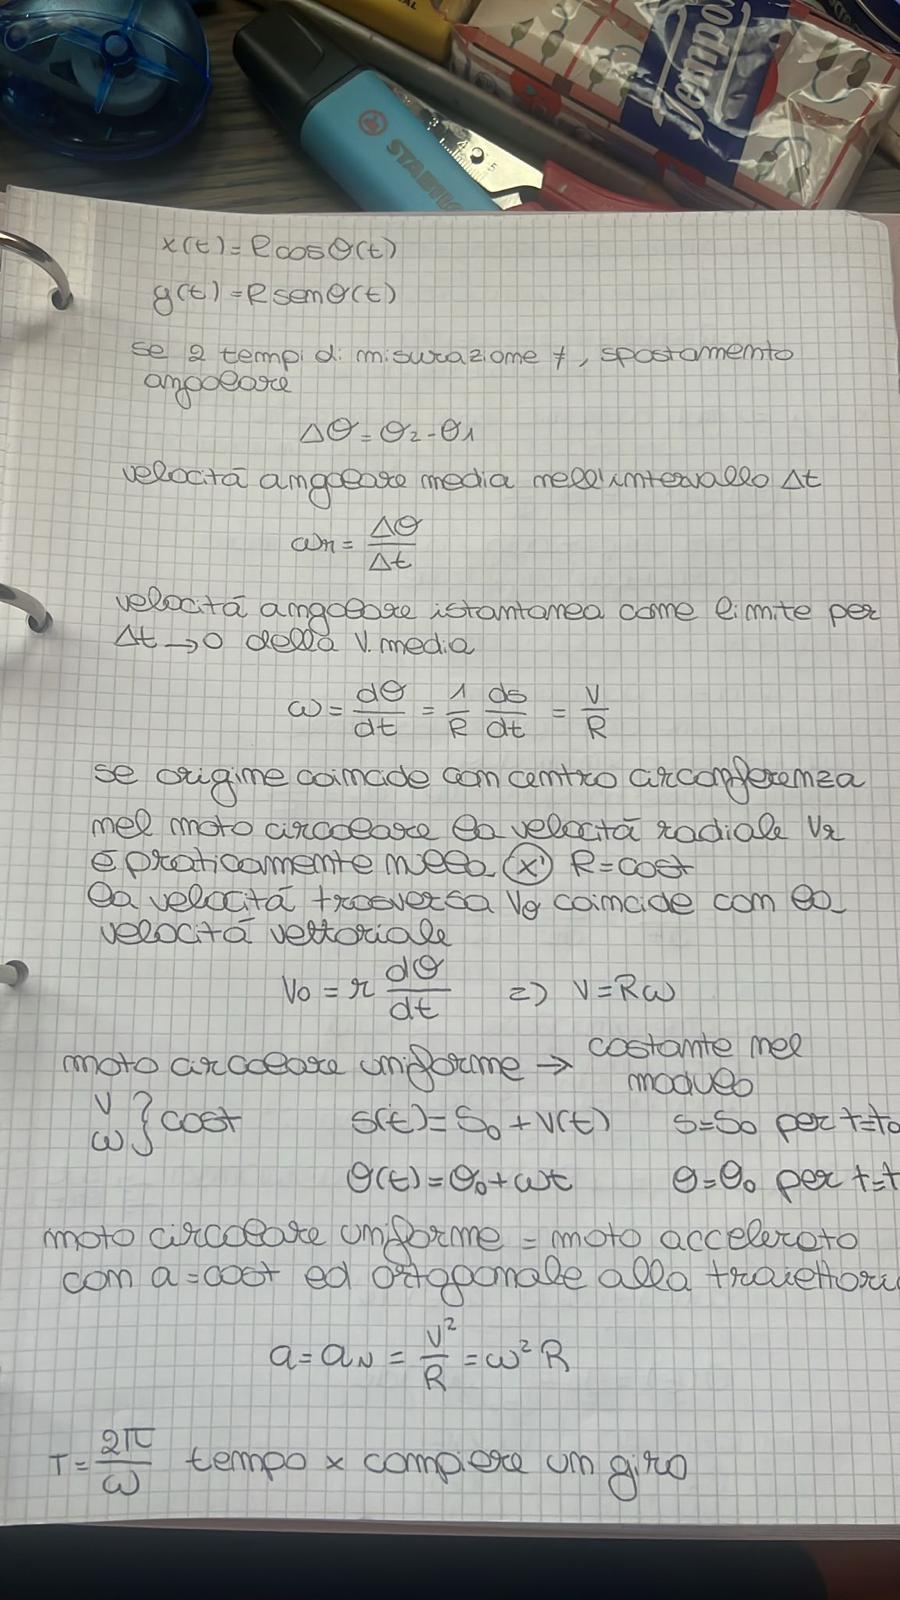 STABILO
Tempo
x(t)=Rcosθ(t)
y(t)=Rsenθ(t)
se 2 tempi di misurazione ≠, spostamento
angolare
Δθ=θ₂-θ₁
velocità angolare media nell'intervallo Δt
ωm = Δθ/Δt
velocità angolare istantanea come limite per
Δt→0 della v. media
ω = dθ/dt = 1/R ds/dt = v/R
se origine coincide con centro circonferenza
nel moto circolare la velocità radiale Vr
è praticamente nulla (x') R=cost
la velocità trasversa Vθ coincide con la
velocità vettoriale
Vθ = r dθ/dt => V=Rω
moto circolare uniforme → costante nel
modulo
v ω } cost s(t)=S₀+v(t) s=s₀ per t=t₀
θ(t)=θ₀+ωt θ=θ₀ per t=t
moto circolare uniforme = moto accelerato
con a=cost ed ortogonale alla traiettori
a=aN = V²/R = ω²R
T= 2π/ω tempo x compiere un giro